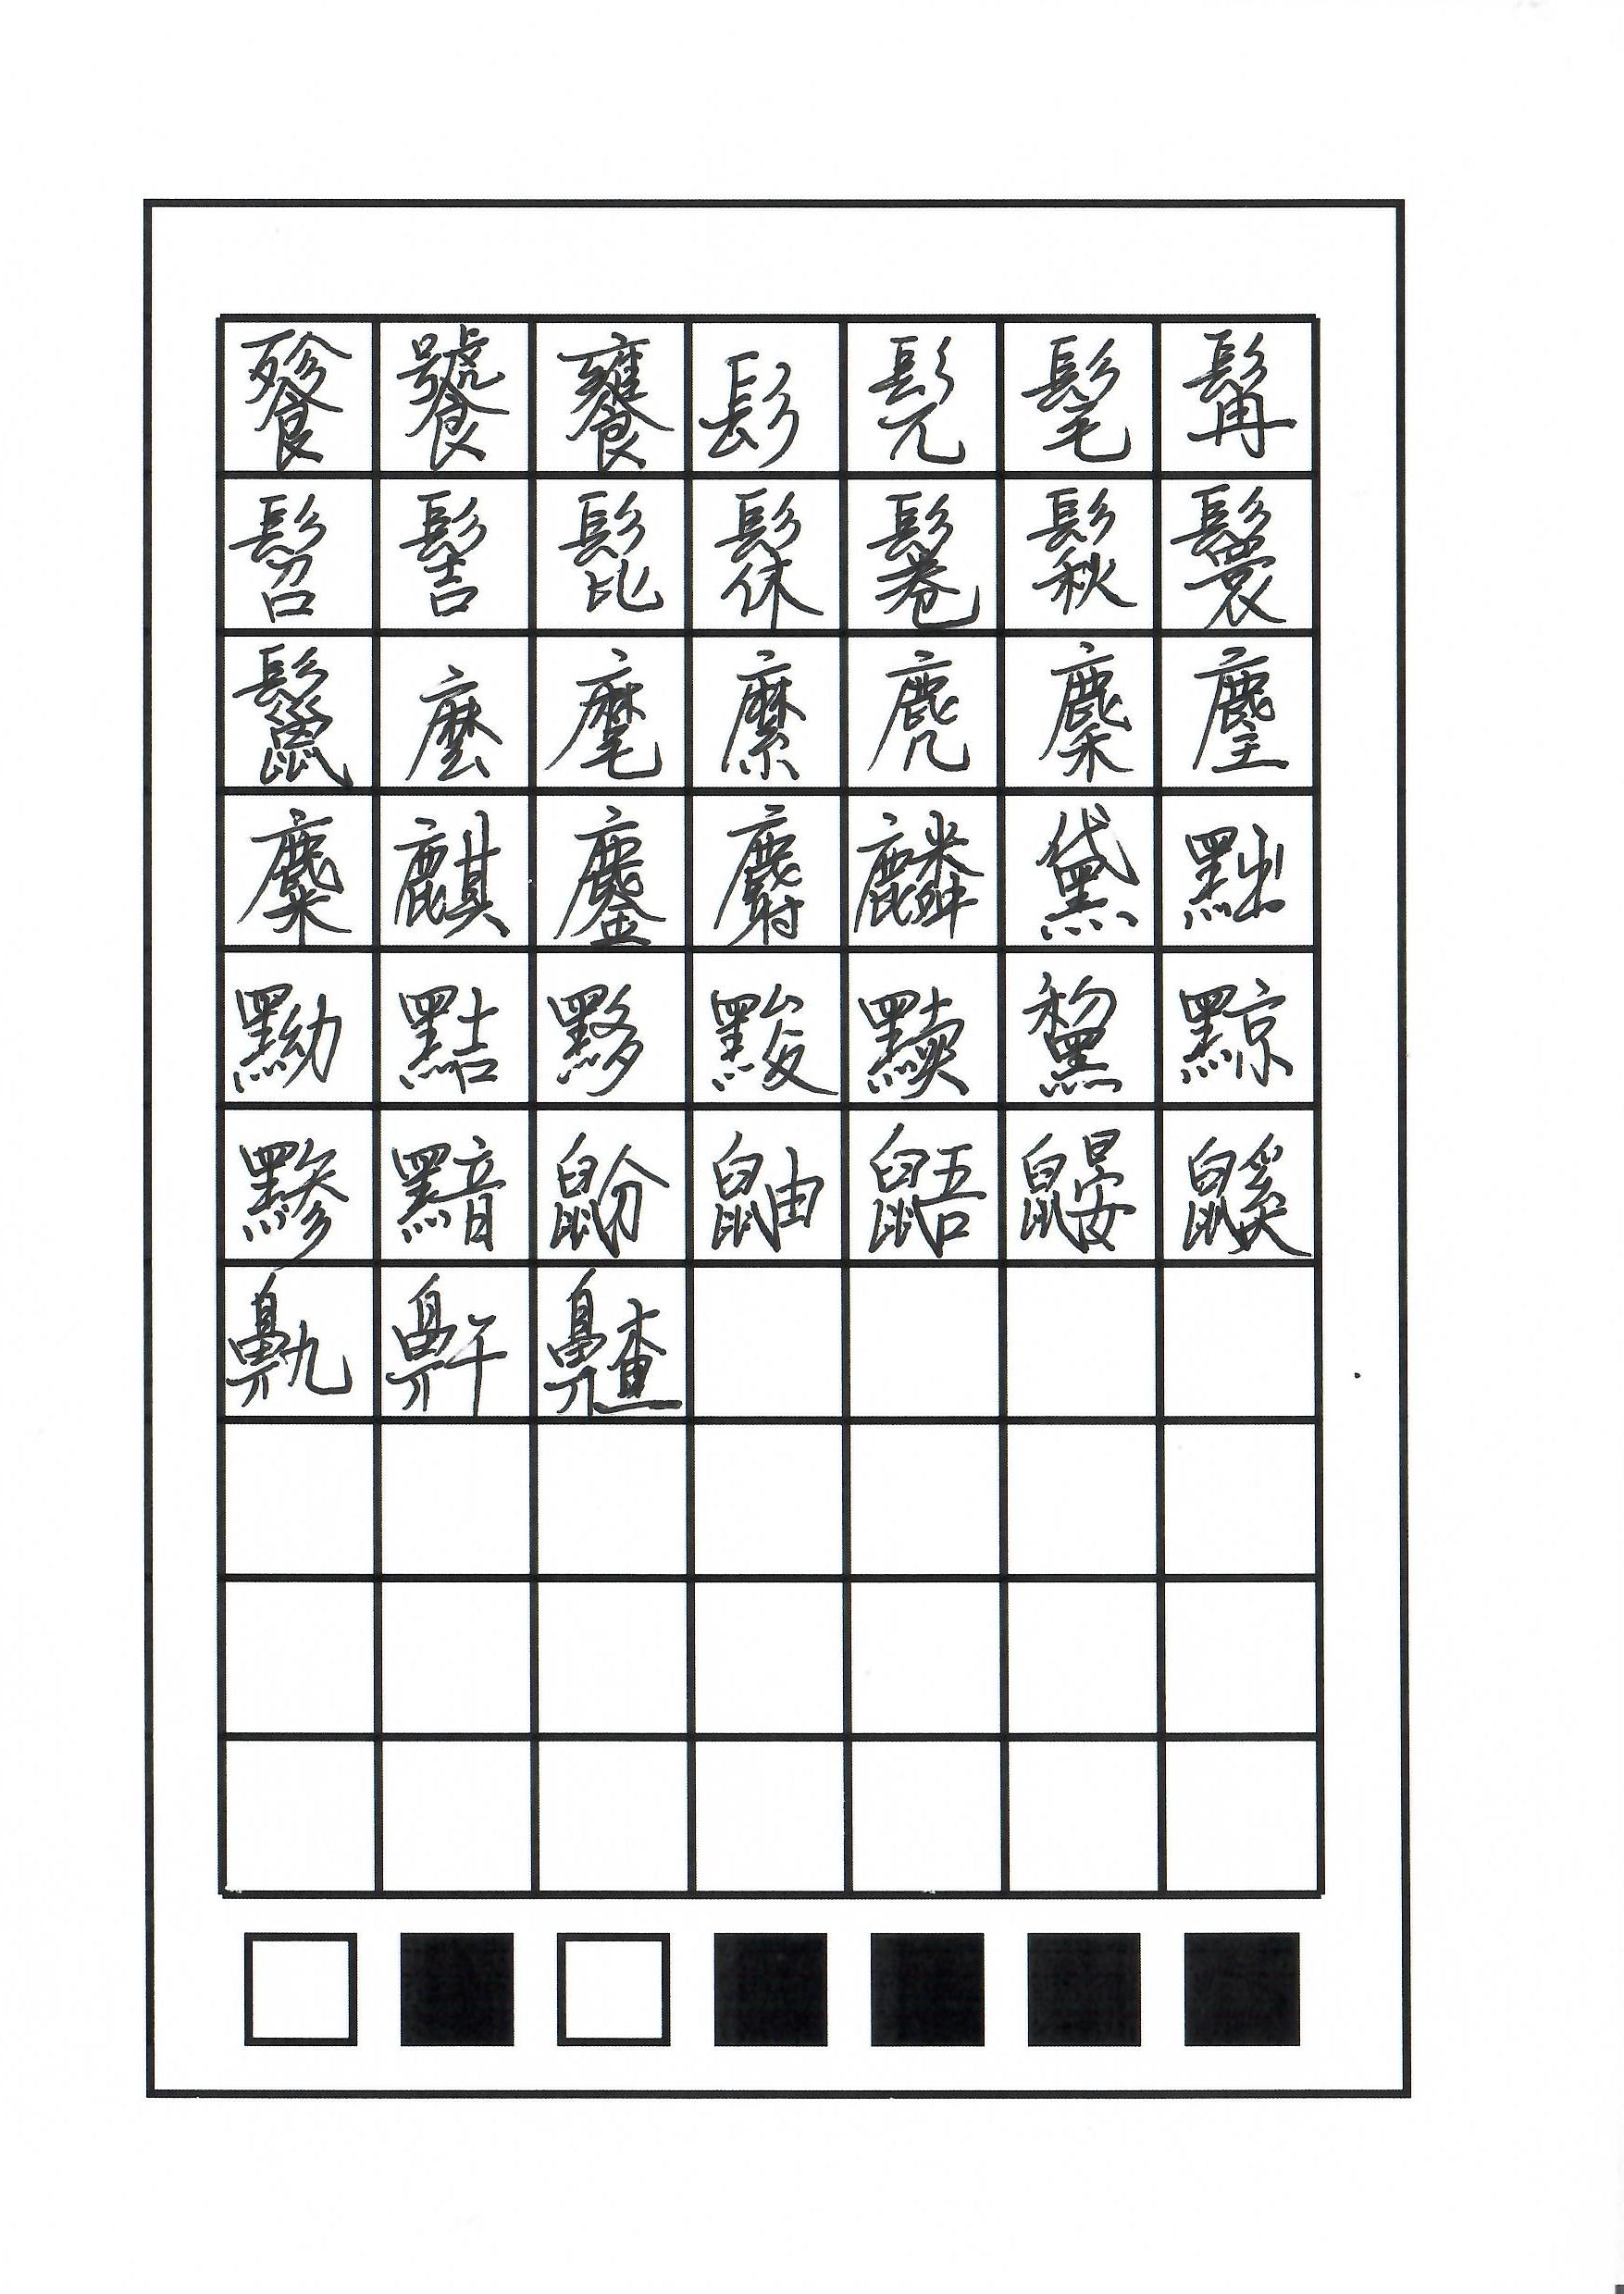 飱饕饔髟髡髦髯
髫髻髭髹鬈鬏鬟
鬣麽麾縻麂麇麈
麋麒鏖麝麟黛黜
黝黠黟黢黩黧黥
黪黯鼢鼬鼯鼹鼷
鼽鼾齄